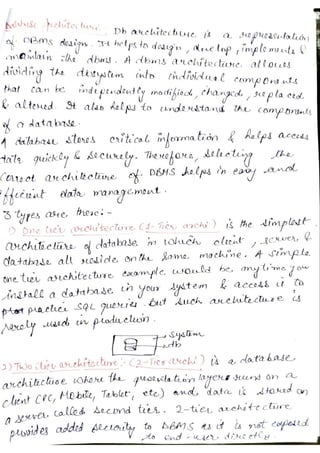 Database Architecture:
Db architecture is a representation
of DBMS design. It helps to design, develop, implement &
maintain the dbms. A dbms architecture allows
dividing the dbsystem into individual components
that can be independently modified, changed, replaced
& altered. It also helps to understand the components
of a database.
A database stores critical information & helps access
data quickly & securely. Therefore, selecting the
correct architecture of DBMS helps in easy and
efficient data management.
3 types are there:-
1) One tier architecture (1-Tier archi) is the simplest
architecture of database in which client, server, &
database all reside on the same machine. A simple
one tier architecture example would be anytime you
install a database in your system & access it to
practice SQL queries. But such architecture is
rarely used in production.
System
db
2) Two tier architecture:- (2-Tier archi) is a database
architecture where the presentation layers runs on a
client (PC, Mobile, Tablet, etc) and data is stored on
a server called second tier. 2-tier architecture
provides added security to DBMS as it is not exposed
to end-user directly.